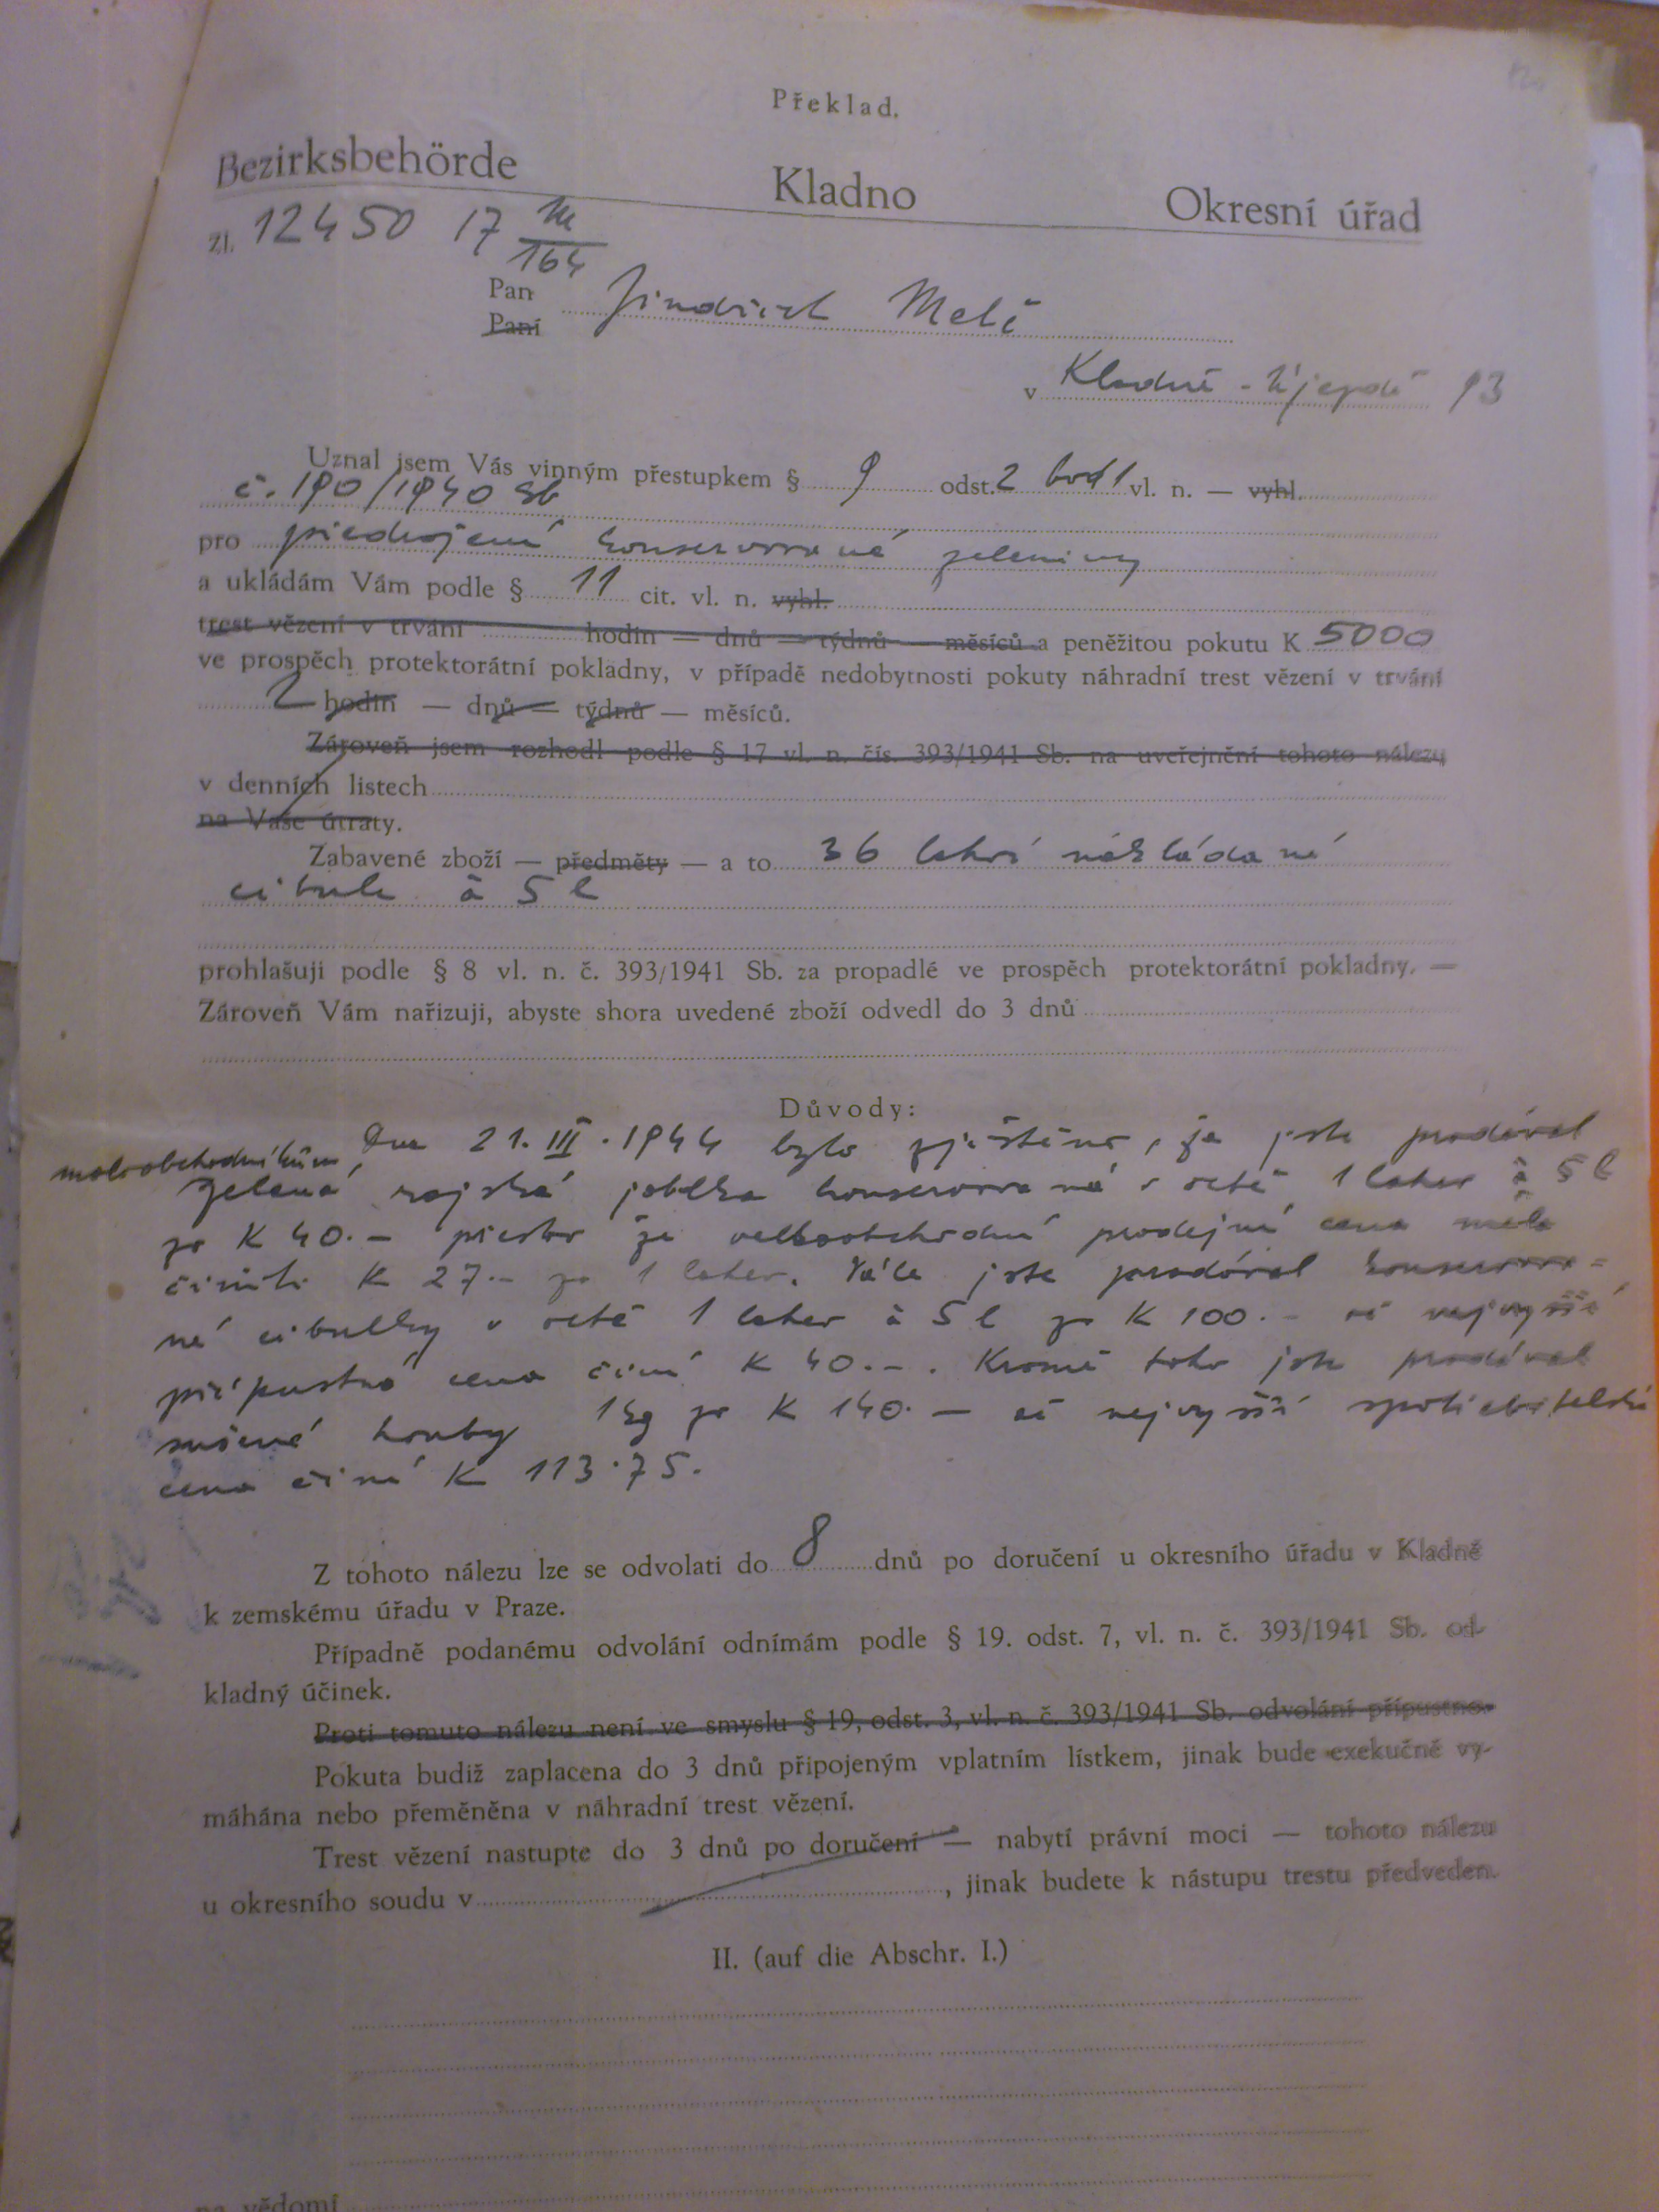 Překlad.
Bezirksbehörde Kladno Okresní úřad
Zl. 12450 17 164
Pan Jindřich
Paní
v Kladně - Újezdě 93
Uznal jsem Vás vinným přestupkem § 9 odst. 2 bod 1 vl. n. — vyhl.
č. 190/1940 Sb
pro předražení konservované zeleniny
a ukládám Vám podle § 11 cit. vl. n. vyhl.
trest vězení v trvání hodin — dnů — týdnů — měsíců a peněžitou pokutu K 5000
ve prospěch protektorátní pokladny, v případě nedobytnosti pokuty náhradní trest vězení v trvání
2 hodin — dnů — týdnů — měsíců.
Zároveň jsem rozhodl podle § 17 vl. n. čís. 393/1941 Sb. na uveřejnění tohoto nálezu
v denních listech
na Vaše útraty.
Zabavené zboží — předměty — a to 36 lahví nakládané
cibule à 5 l
prohlašuji podle § 8 vl. n. č. 393/1941 Sb. za propadlé ve prospěch protektorátní pokladny. —
Zároveň Vám nařizuji, abyste shora uvedené zboží odvedl do 3 dnů
Důvody:
Dne 21. III. 1944 bylo zjištěno, že jste prodával
maloobchodníkům zelená rajská jablka konservovaná v octě 1 lahev à 5 l
za K 40.– přesto že velkoobchodní prodejní cena měla
činiti K 27.– za 1 lahev. Dále jste prodával konservova=
né cibulky v octě 1 lahev à 5 l za K 100.– ač nejvyšší
přípustná cena činí K 40.–. Kromě toho jste prodával
sušené houby 1 kg za K 140.– ač nejvyšší spotřebitelská
cena činí K 113.75.
Z tohoto nálezu lze se odvolati do 8 dnů po doručení u okresního úřadu v Kladně
k zemskému úřadu v Praze.
Případně podanému odvolání odnímám podle § 19. odst. 7, vl. n. č. 393/1941 Sb. od-
kladný účinek.
Proti tomuto nálezu není ve smyslu § 19, odst. 3, vl. n. č. 393/1941 Sb. odvolání přípustno.
Pokuta budiž zaplacena do 3 dnů připojeným vplatním lístkem, jinak bude exekučně vy-
máhána nebo přeměněna v náhradní trest vězení.
Trest vězení nastupte do 3 dnů po doručení — nabytí právní moci — tohoto nálezu
u okresního soudu v , jinak budete k nástupu trestu předveden.
II. (auf die Abschr. I.)
na vědomí